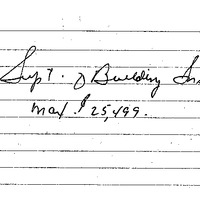 Supt. of Building Ins
max. $25,499.